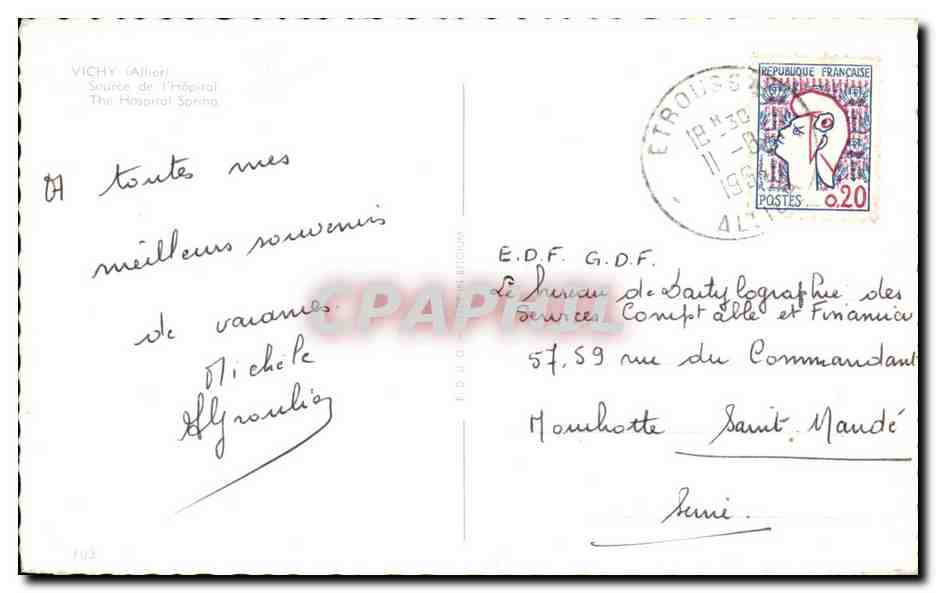 VICHY (Allier)
Source de l'Hôpital
The Hospital Spring
A toutes mes
meilleurs souvenirs
de vacances.
Michèle
103
CPARAMA
ETROUSSAT
18 H -30
11 -8
196
ALLIER
REPUBLIQUE FRANÇAISE
POSTES 0,20
E.D.F. G.D.F.
Le bureau de Dactylographie des
Services Comptable et Financier
57,59 rue du Commandant
Mouchotte Saint. Mandé
Seine.